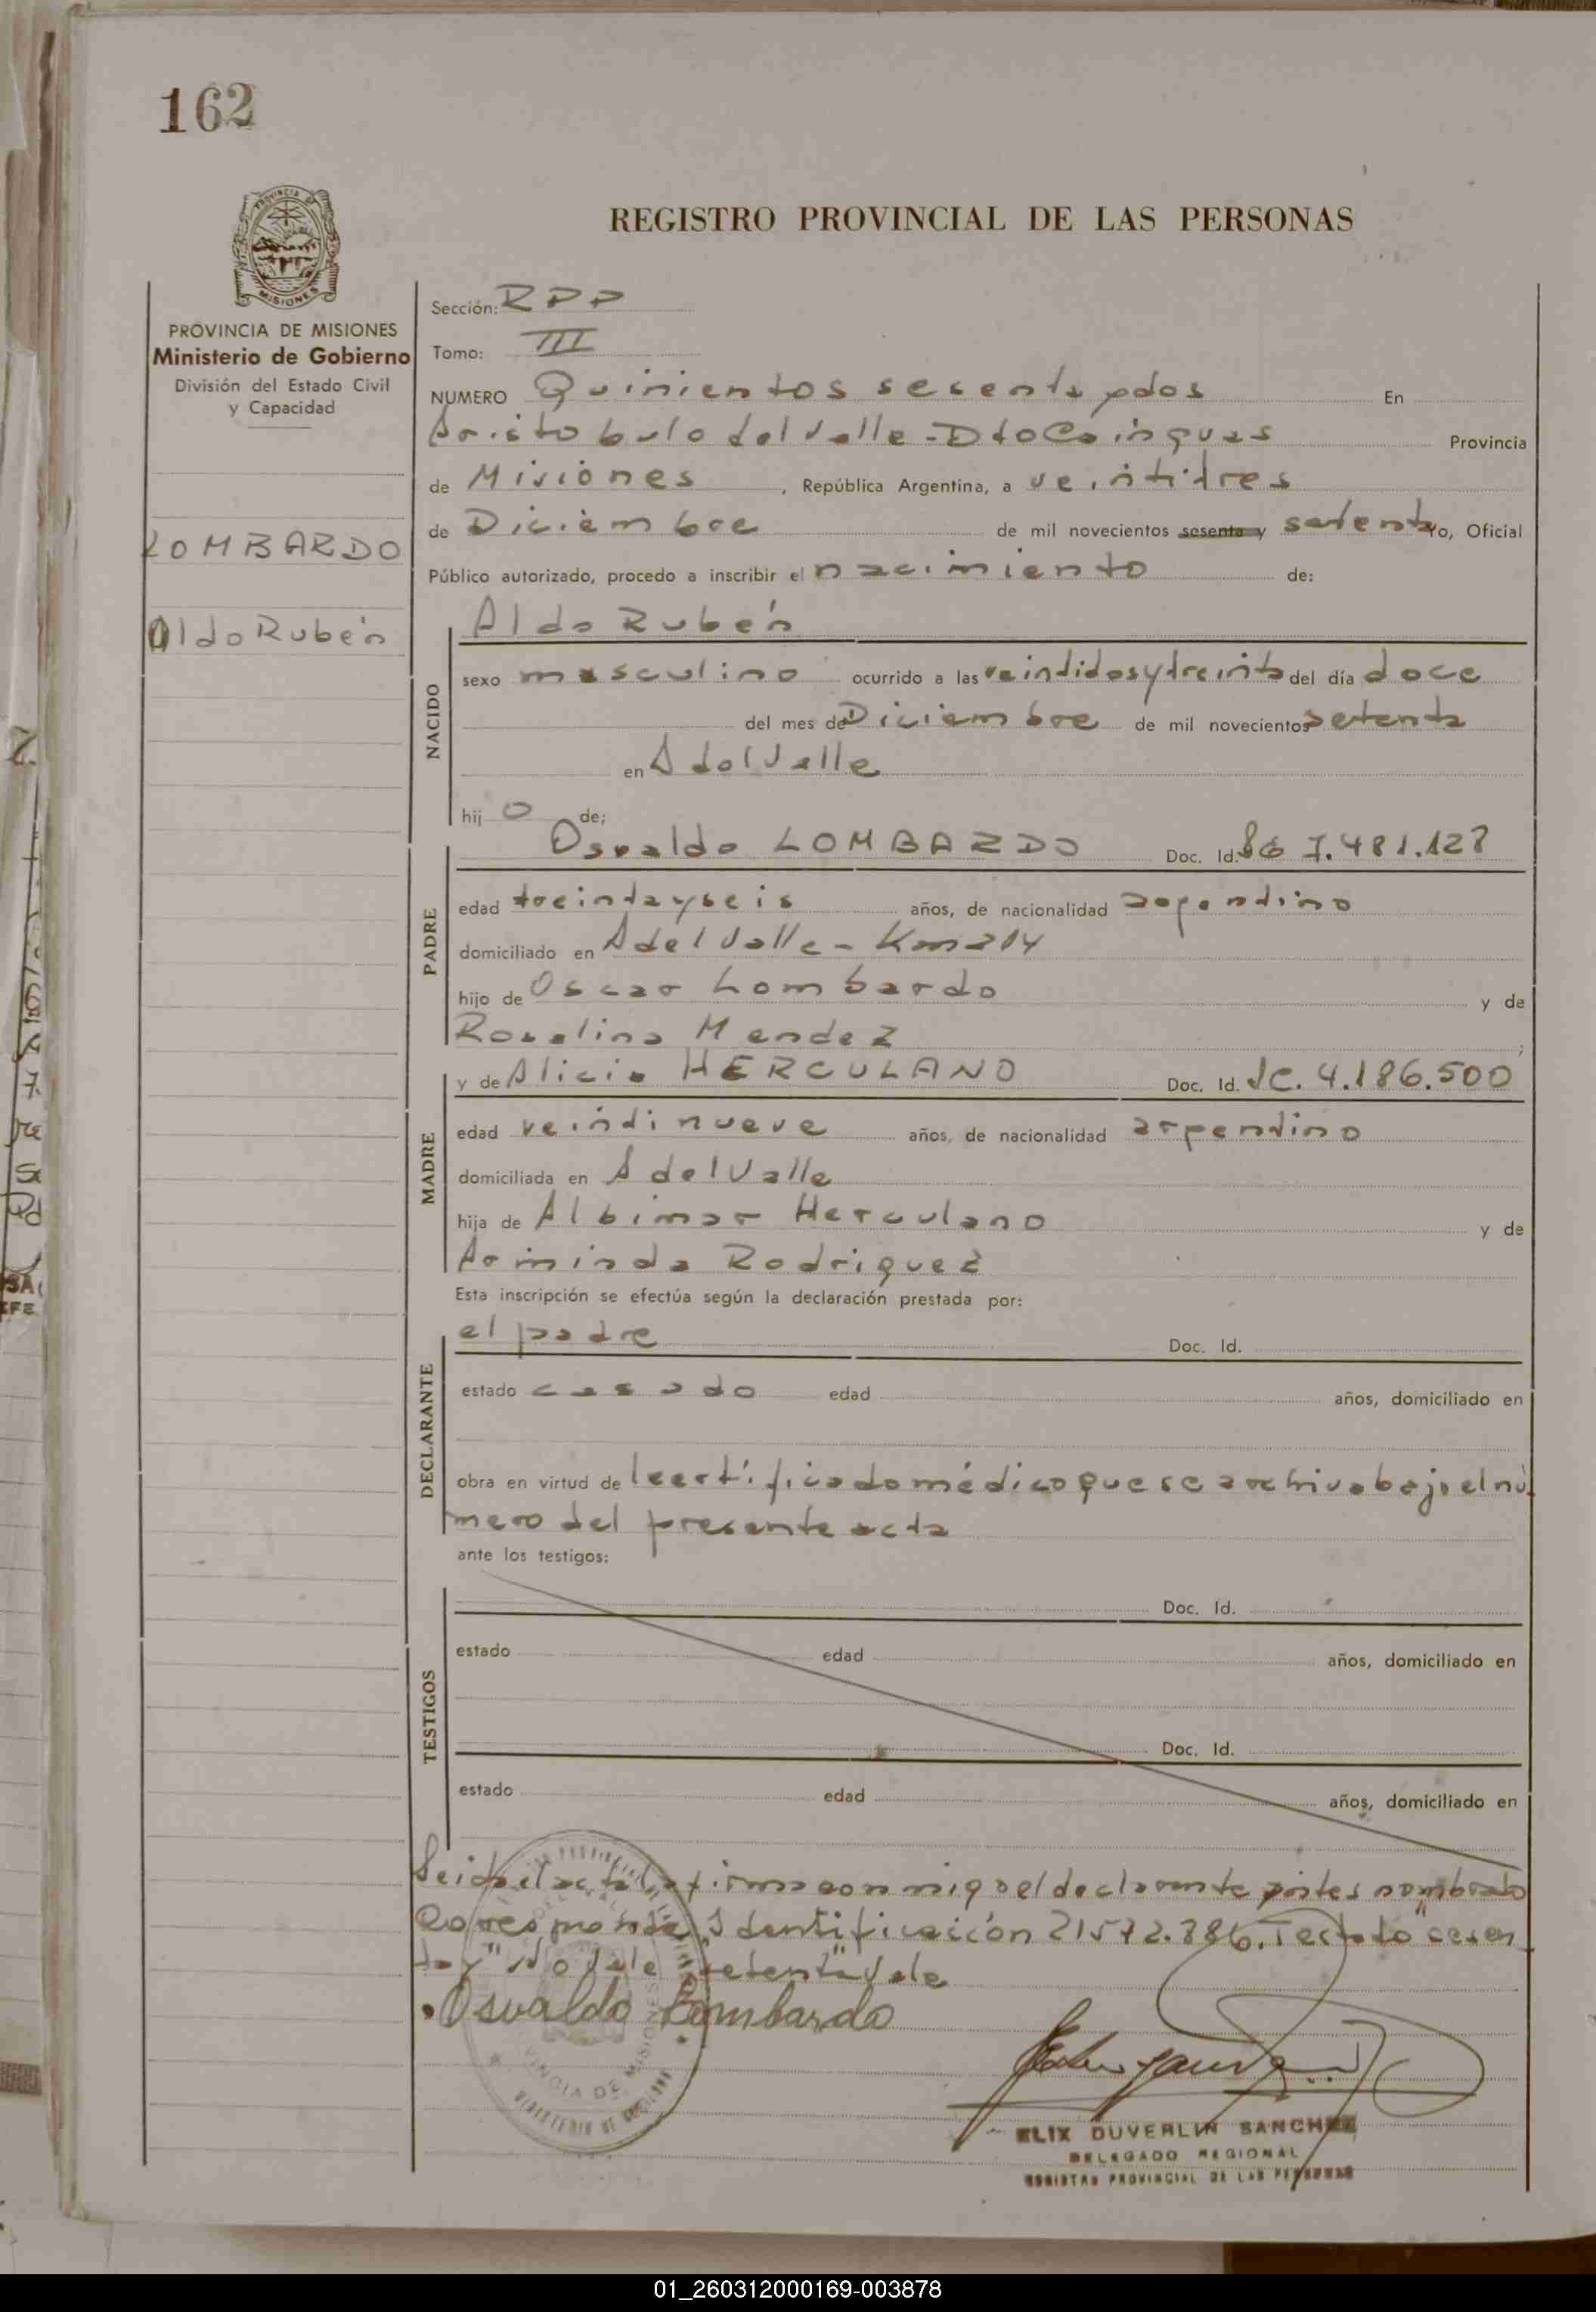 162
REGISTRO PROVINCIAL DE LAS PERSONAS
PROVINCIA DE MISIONES
Ministerio de Gobierno
División del Estado Civil
y Capacidad
LOMBARDO
Aldo Rubén
Sección: RPP
Tomo: III
NUMERO Quinientos sesenta y dos En
Aristobulo del Valle - Dto Cainguas Provincia
de Misiones, República Argentina, a veintitres
de Diciembre de mil novecientos sesenta y setenta Yo, Oficial
Público autorizado, procedo a inscribir el nacimiento de:
NACIDO
Aldo Rubén
sexo masculino ocurrido a las veintidos y treinta del día doce
del mes de Diciembre de mil novecientos setenta
en A del Valle
hij o de;
PADRE
Osvaldo LOMBARDO Doc. Id. 7.481.128
edad treinta y seis años, de nacionalidad argentino
domiciliado en A del Valle - Km 214
hijo de Oscar Lombardo y de
Rosalina Mendez ;
MADRE
y de Alicia HERCULANO Doc. Id. 4.186.500
edad veintinueve años, de nacionalidad argentino
domiciliada en A del Valle
hija de Albimar Herculano y de
Arminda Rodriguez
Esta inscripción se efectúa según la declaración prestada por:
DECLARANTE
el padre Doc. Id.
estado casado edad años, domiciliado en
obra en virtud de certificado médico que se archiva bajo el nú
mero del presente acta
ante los testigos:
TESTIGOS
Doc. Id.
estado edad años, domiciliado en
Doc. Id.
estado edad años, domiciliado en
Leida el acta la firma conmigo el declarante antes nombrado
Corresponde Identificación 21572.386. Testado "sesen
ta y" No vale "setenta" Vale
Osvaldo Lombardo
ELIX DUVERLIN SANCHEZ
DELEGADO REGIONAL
REGISTRO PROVINCIAL DE LAS PERSONAS
01_260312000169-003878